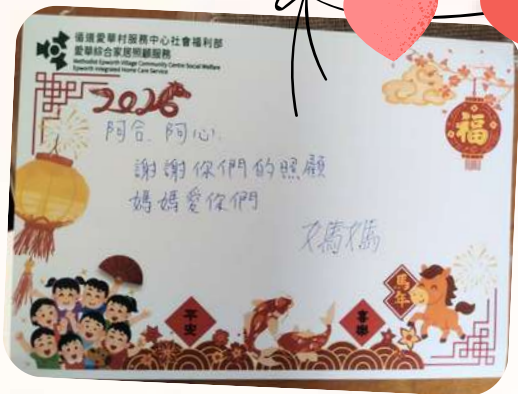 循道愛華村服務中心社會福利部
愛華綜合家居照顧服務
Methodist Epworth Village Community Centre Social Welfare
Epworth Integrated Home Care Service
2026
福
阿合、阿心:
謝謝你們的照顧
媽媽愛你們
媽媽
馬年
平安
喜樂